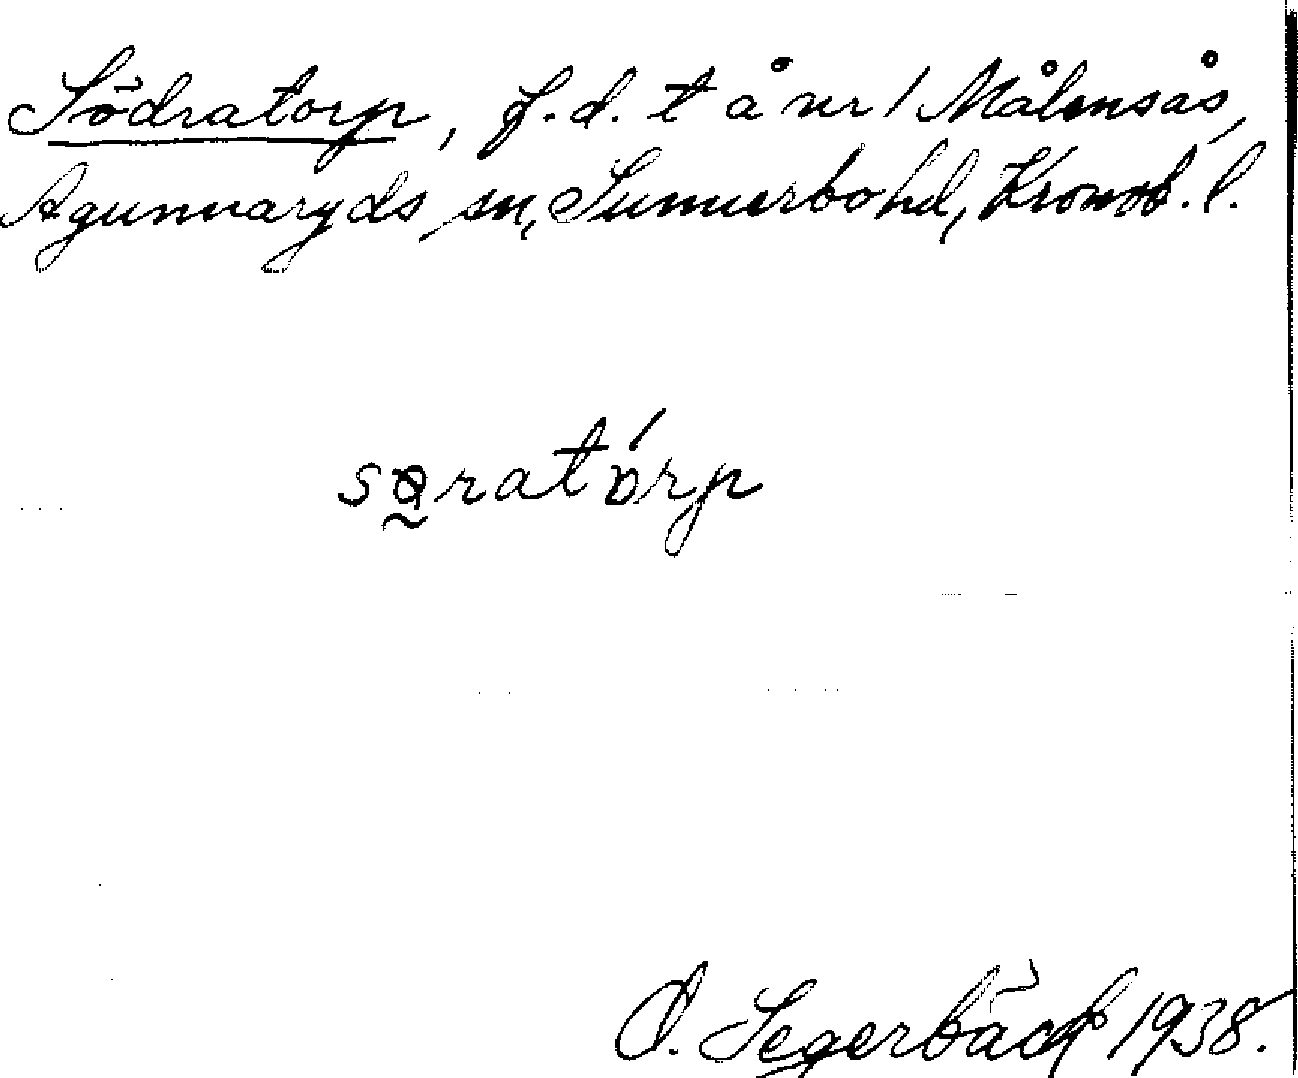 Södratorp, f.d. t å nr 1 Målensås,
Agunnaryds sn, Sunnerbo hd, Kronob. l.
sø̰ratórp
O. Segerbäck 1938.